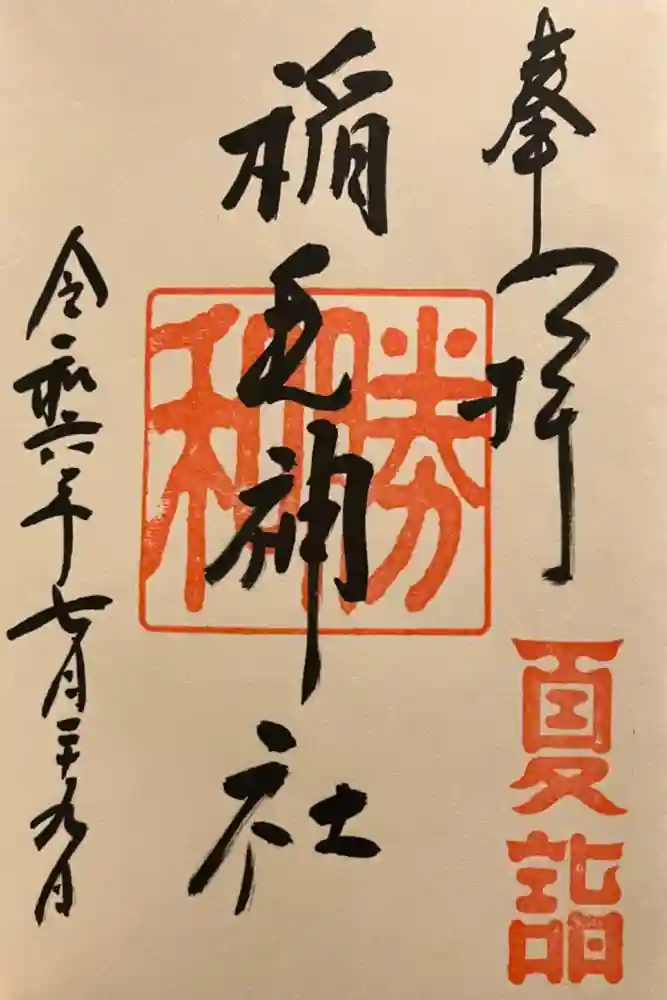 奉拝
夏詣
稲毛神社
勝和
令和六年七月二十九日